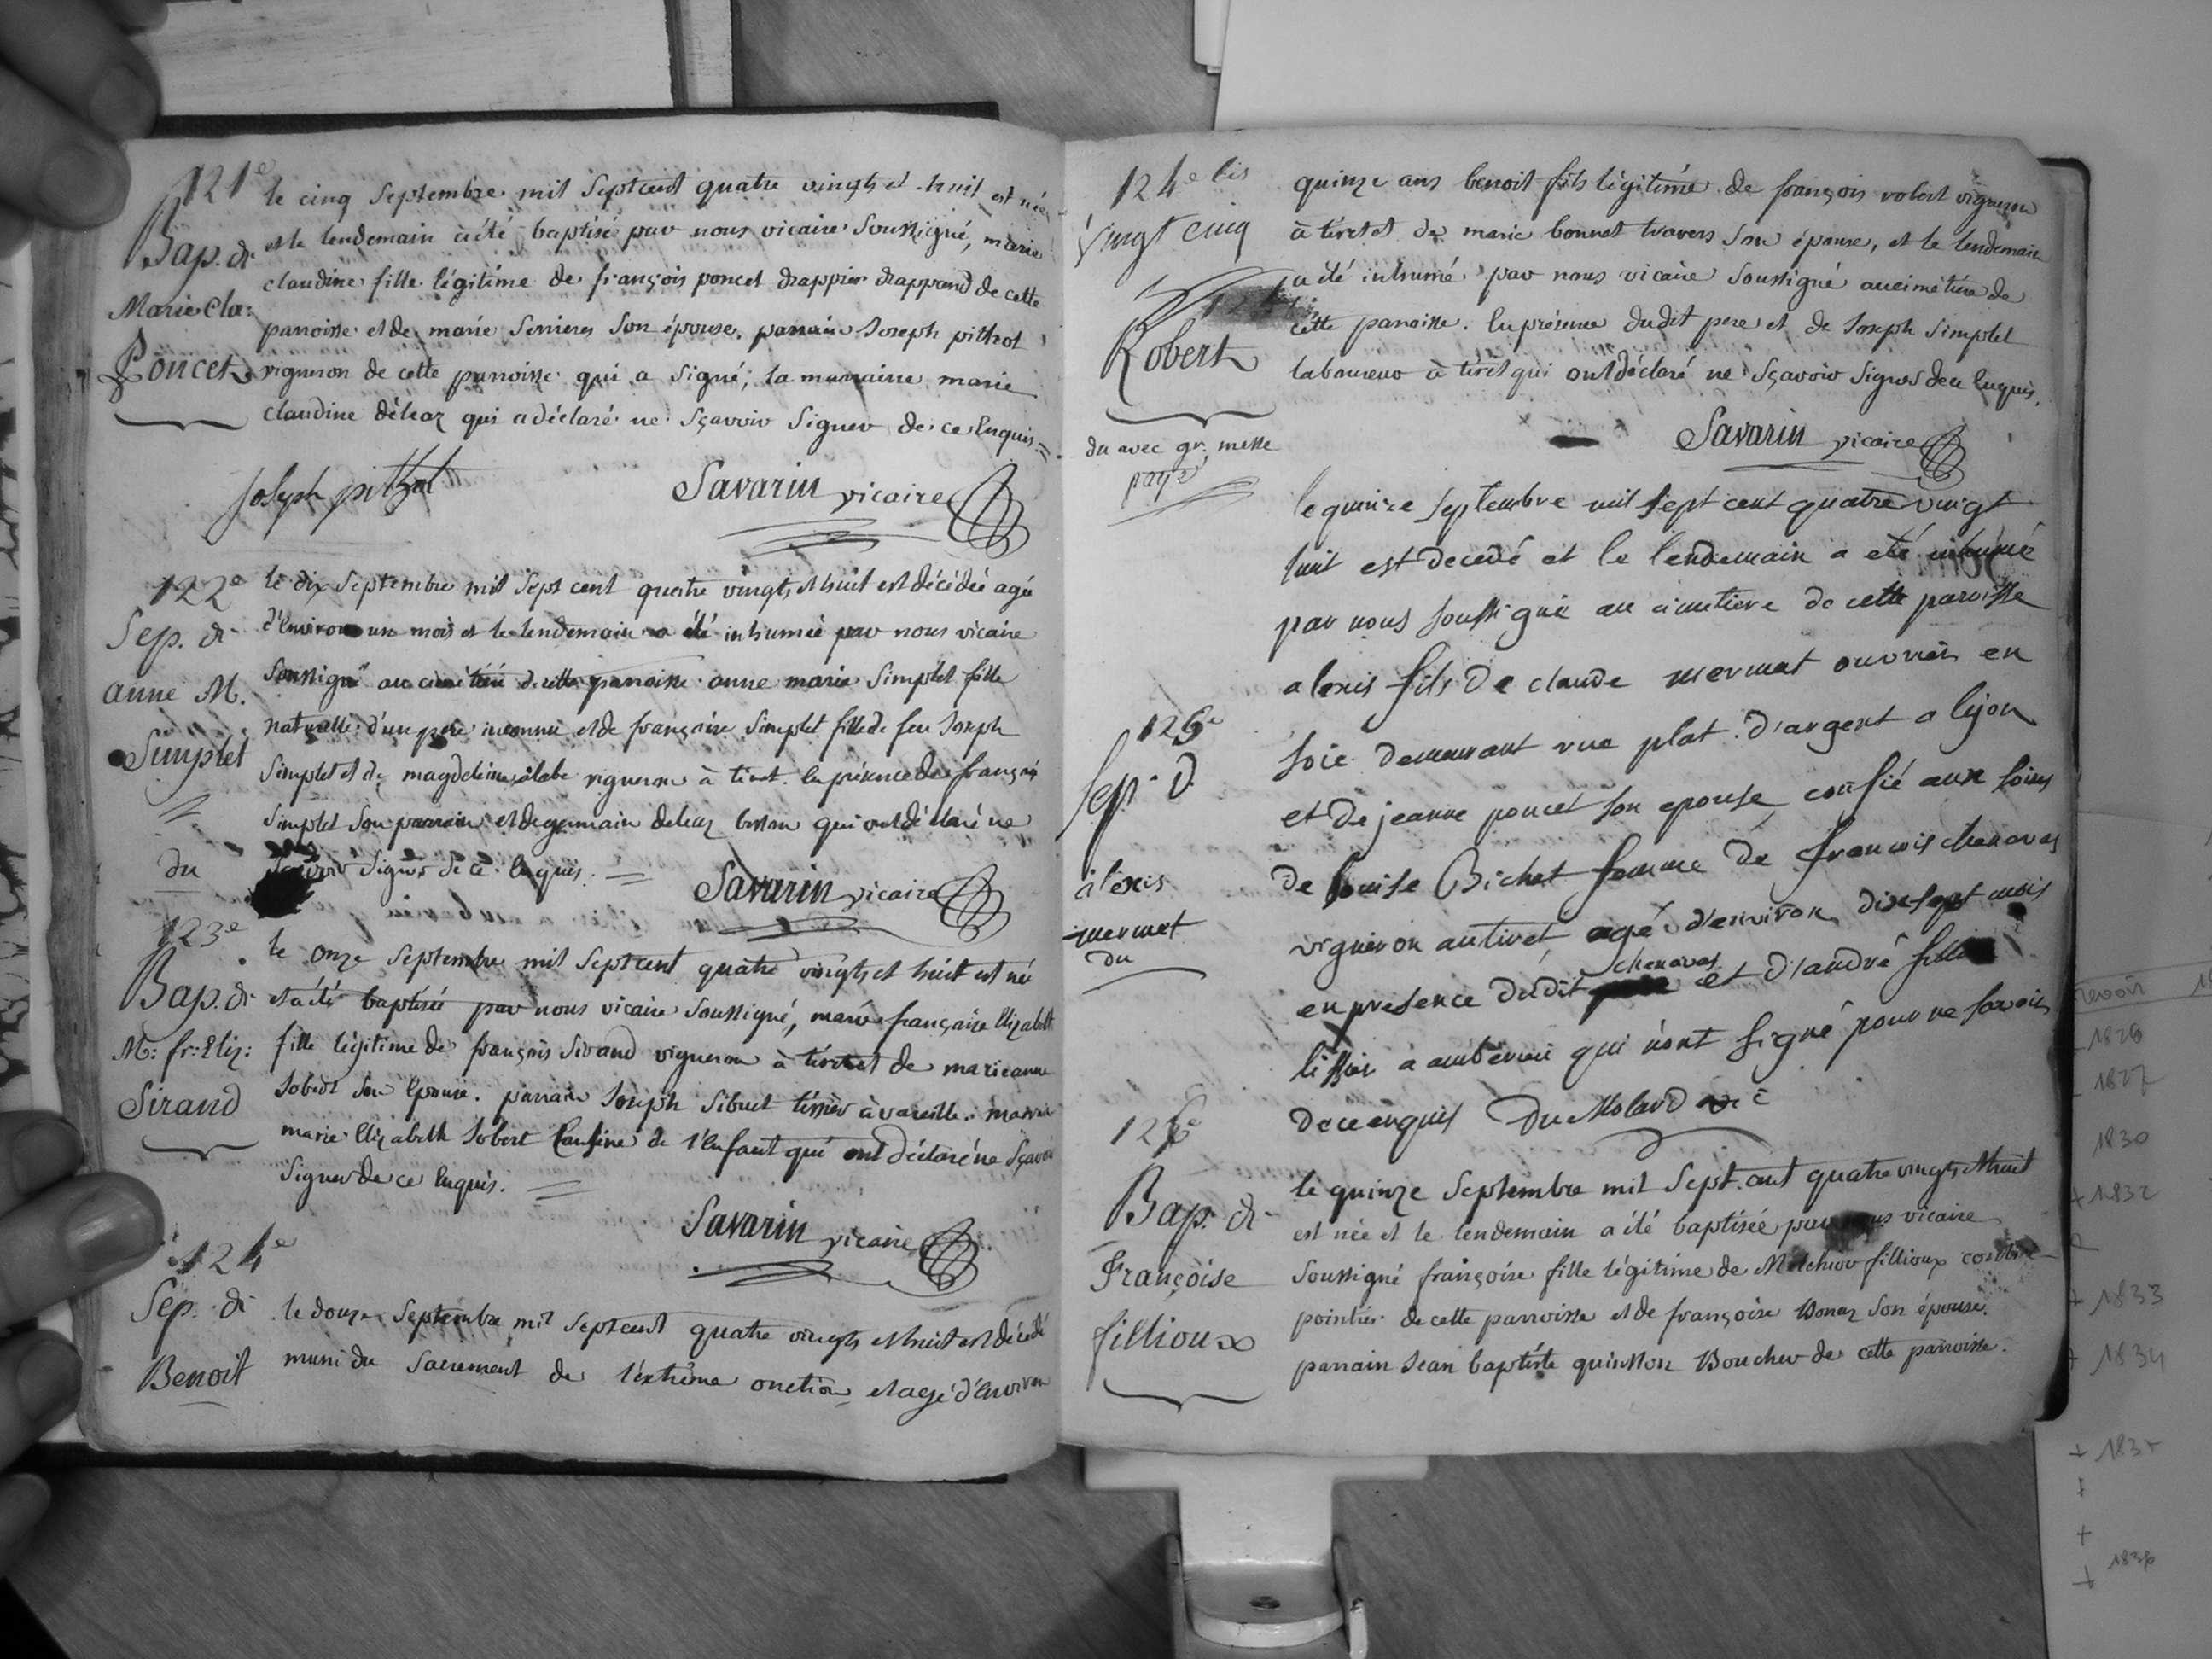 121e
Bap. di
Marie Cla:
Poncet
le cinq Septembre mil Sept cent quatre vingts et huit est née
et le lendemain a été baptisée par nous vicaire Soussigné, marie
claudine fille légitime de françois poncet drappier drapprend de cette
parroisse et de marie Serrieres Son épouse. parrain Joseph pithiot
vigneron de cette parroisse qui a signé; la marraine marie
claudine déleaz qui a déclaré ne Sçavoir Signer de ce Enquis =
Joseph pithiot
Savarin vicaire
122e
Sep. di
anne M.
Simplet
du
le dix Septembre mil Sept cent quatre vingts et huit est décédée agée
d'Environ un mois et le lendemain a été inhumée par nous vicaire
Soussigné au cimetière de cette parroisse anne marie Simplet fille
naturelle d'un pere inconnu et de françoise Simplet fille de feu Joseph
Simplet et de magdeleine vigneron à tiret. En présence de françois
Simplet Son parrain et de germain deleaz qui ont déclaré ne
Sçavoir Signer de ce Enquis. =
Savarin vicaire
123e
Bap. di
M: fr: Eliz:
Sirand
le onze Septembre mil Sept cent quatre vingts et huit est née
et a été baptisée par nous vicaire Soussigné, marie françoise Elizabeth
fille légitime de françois Sirand vigneron à tiret et de marieanne
Jobert Son Epouse. parrain Joseph Sibuet tissier à vareille. marraine
marie Elizabeth Jobert Cousine de l'Enfant qui ont déclaré ne Sçavoir
Signer de ce Enquis. =
Savarin vicaire
124e
Sep. di
Benoit
le douze Septembre mil Sept cent quatre vingts et huit est décédé
muni du Sacrement de l'extrême onction et agé d'Environ
124e bis
vingt cinq
Robert
du avec gr. messe
payé
quinze ans benoit fils légitime de françois robert vigneron
à tiret et de marie bonnet travers Son épouse, et le lendemain
a été inhumé par nous vicaire Soussigné au cimétière de
cette parroisse. En présence dudit pere et de Joseph Simplet
laboureur à tiret qui ont déclaré ne Sçavoir Signer de ce Enquis.
Savarin vicaire
125e
Sep. d.
alexis
mermet
du
le quinze Septembre mil Sept cent quatre vingt
huit est decedé et le lendemain a eté inhumé
par nous soussigné au cimetiere de cette paroisse
alexis fils de claude mermet ouvrier en
soie demeurant rue plat d'argent a lyon
et de jeanne poncet son epouse, confié aux soins
de louise Bichat femme de francois chenavas
vigneron au tiret, agé d'environ dix sept mois
en presence dudit chenavas et d'andré
tissier a amberieu qui n'ont signé pour ne savoir
de ce enquis Du Molard vic
126e
Bap. di
Françoise
fillioux
le quinze Septembre mil Sept. cent quatre vingts et huit
est née et le lendemain a été baptisée par nous vicaire
Soussigné françoise fille légitime de Melchior fillioux contre
pointier de cette parroisse et de françoise Bonaz Son épouse.
parrain Jean baptiste quinsson Boucher de cette parroisse.
1826
1827
1830
+ 1832
+ 1833
+ 1834
+ 1835
+
+
+ 1836